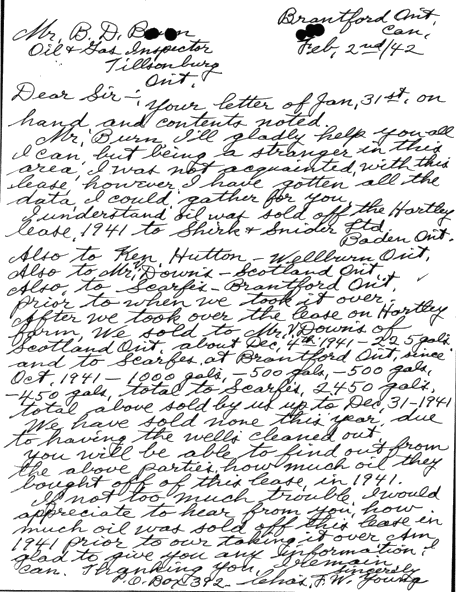 Brantford Ont.
Can,
Feb, 2nd/42
Mr. B. D.
Oil & Gas Inspector
Tillsonburg
Ont.
Dear Sir –; Your letter of Jan, 31st. on
hand and contents noted.
Mr, Burn I'll gladly help you all
I can, but being a stranger in this
area, I was not acquainted, with this
lease, however, I have gotten all the
data, I could, gather for you.
I understand oil was sold off the Hartley
lease, 1941 to Shirk & Snider Ltd,
Baden Ont.
Also to Ken, Hutton – Wellburn Ont,
Also to Mr, V. Down's – Scotland Ont.
Also, to Scarfe's – Brantford Ont,
prior to when we took it over;
After we took over the lease on Hartley
farm, We sold to Mr, V. Down's of
Scotland Ont, about Dec, 4th 1941 – 225 gals.
and to Scarfes, at Brantford Ont, since
Oct, 1941 – 1000 gals, – 500 gals, – 500 gals,
– 450 gals, total to Scarfes, 2450 gals,
total above sold by us up to Dec, 31 – 1941
We have sold none this year, due
to having the wells cleaned out,
you will be able to find out from
the above parties, how much oil they
bought off of this lease, in 1941.
If not too much trouble, I would
appreciate to hear from you, how
much oil was sold off this lease in
1941 prior to our taking it over Am
glad to give you any information I
can. Thanking you, I remain
Sincerely
P.O. Box 392 Chas, F. W. Young